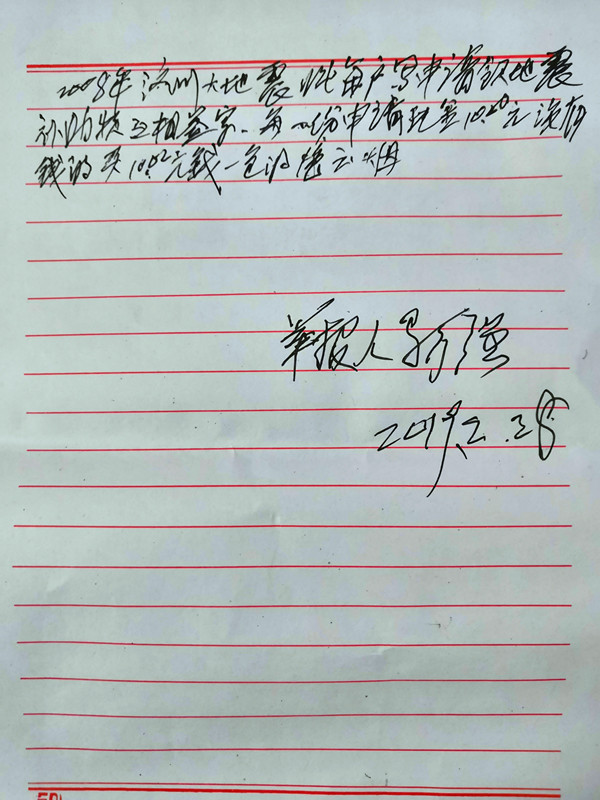 2008年汶川大地震 此每户写申请领地震
补助 每一份申请现金10.20元 没有
钱的买10.02元钱一包的 云烟
举报人 强
2019.2.28